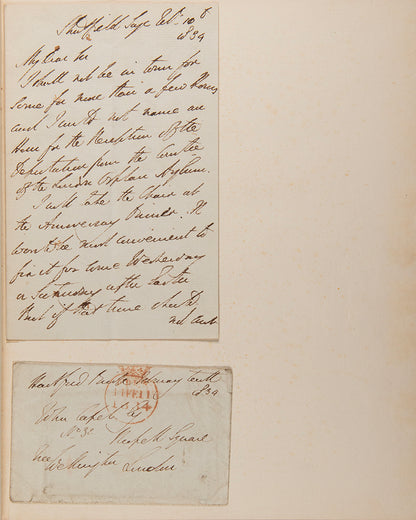 Strathfield Saye Feb. 10
1834
My Dear Sir
I shall not be in town for
some for more than a few Hours
and I could not name an
Hour for the Reception of the
Deputation from the
of the London Orphan Asylum.
I will take the Chair at
the Anniversary Dinner. It
would be most convenient to
fix it for some Wednesday
or Saturday after Easter
But if that time should
not suit
Hartford Bridge February tenth
1834
John Capel Esq
No 32
Russell Square
Wellington London